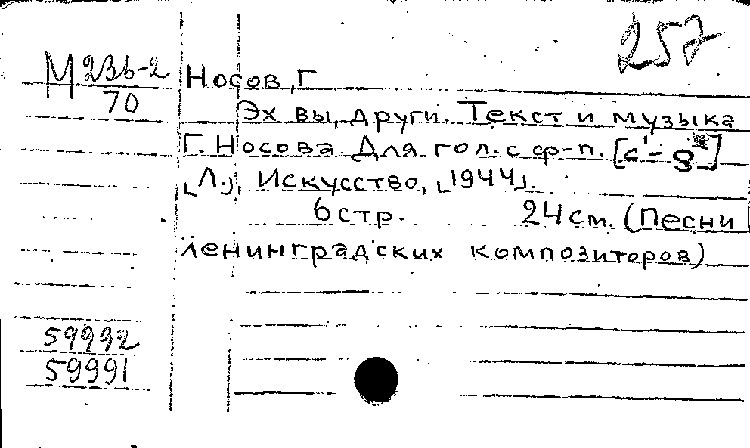 257
М 23б-2
70
Носов, Г
Эх вы, други. Текст и музыка
Г. Носова Для гол. с ф-п. [c¹-g²]
[Л.], Искусство, [1944].
6 стр. 24 см. (Песни
ленинградских композиторов)
59232
59991